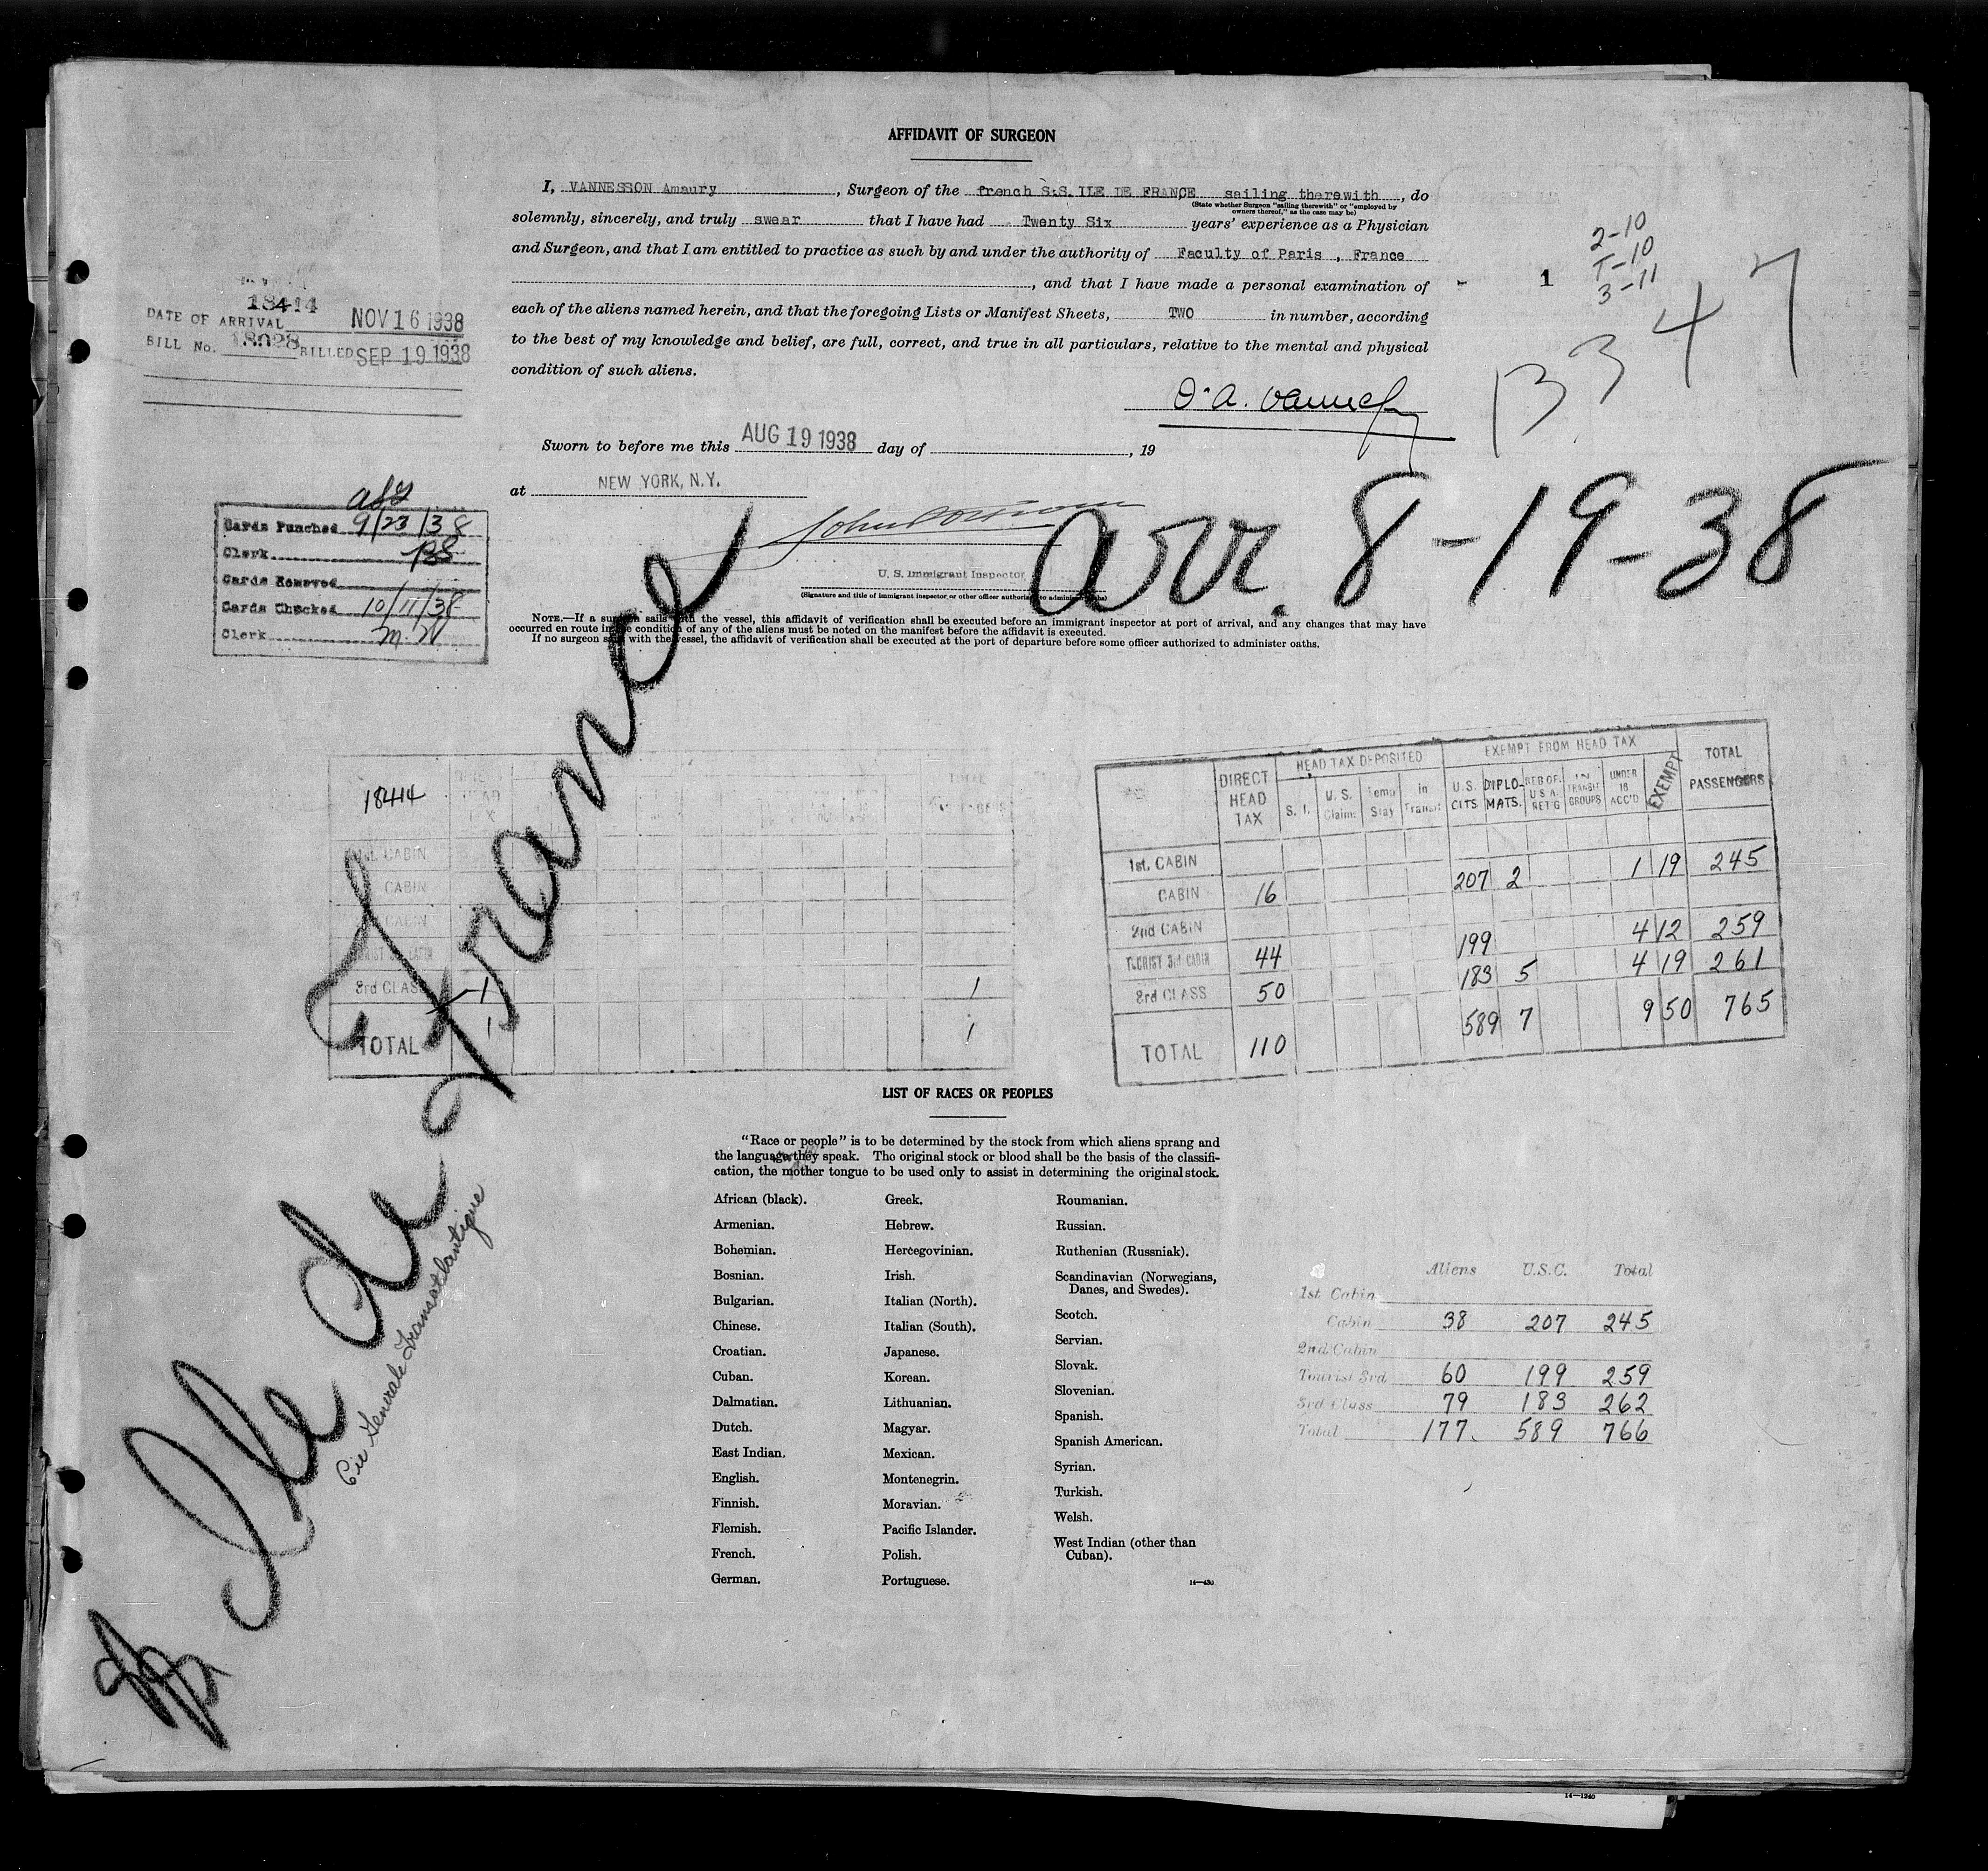 AFFIDAVIT OF SURGEON
I, VANNESSON Amaury, Surgeon of the french S.S. ILE DE FRANCE sailing therewith, do
(State whether Surgeon "sailing therewith" or "employed by
owners thereof," as the case may be)
solemnly, sincerely, and truly swear that I have had Twenty Six years' experience as a Physician
and Surgeon, and that I am entitled to practice as such by and under the authority of Faculty of Paris , France
, and that I have made a personal examination of
each of the aliens named herein, and that the foregoing Lists or Manifest Sheets, TWO in number, according
to the best of my knowledge and belief, are full, correct, and true in all particulars, relative to the mental and physical
condition of such aliens.
Sworn to before me this AUG 19 1938 day of , 19
at NEW YORK, N.Y.
U. S. Immigrant Inspector
(Signature and title of immigrant inspector or other officer authorized to administer
NOTE.—If a surgeon sails with the vessel, this affidavit of verification shall be executed before an immigrant inspector at port of arrival, and any changes that may have
occurred en route in the condition of any of the aliens must be noted on the manifest before the affidavit is executed.
If no surgeon sails with the vessel, the affidavit of verification shall be executed at the port of departure before some officer authorized to administer oaths.
1
2-10
T-10
3-11
13347
arr. 8-19-38
18414
DATE OF ARRIVAL NOV 16 1938
BILL No. 18028 BILLED SEP 19 1938
Cards Punched 9/23/38
Clerk
Cards Removed
Cards Checked 10/11/38
Clerk M. W
Ile de France
Cie Generale Transatlantique
18414
1st. CABIN
CABIN
CABIN
3rd CLASS 1 1
TOTAL 1 1
DIRECT HEAD TAX
HEAD TAX DEPOSITED
S. I.
U. S. Claims
Temp Stay
in Transit
EXEMPT FROM HEAD TAX
U.S. CITS
DIPLO- MATS.
RES OF. U S A. RET'G
IN TRANSIT GROUPS
UNDER 16 ACC'D
EXEMPT
TOTAL PASSENGERS
1st. CABIN
CABIN 16 207 2 1 19 245
2nd CABIN
TOURIST 3rd CABIN 44 199 4 12 259
3rd CLASS 50 183 5 4 19 261
TOTAL 110 589 7 9 50 765
LIST OF RACES OR PEOPLES
"Race or people" is to be determined by the stock from which aliens sprang and
the language they speak. The original stock or blood shall be the basis of the classifi-
cation, the mother tongue to be used only to assist in determining the original stock.
African (black).
Armenian.
Bohemian.
Bosnian.
Bulgarian.
Chinese.
Croatian.
Cuban.
Dalmatian.
Dutch.
East Indian.
English.
Finnish.
Flemish.
French.
German.
Greek.
Hebrew.
Hercegovinian.
Irish.
Italian (North).
Italian (South).
Japanese.
Korean.
Lithuanian.
Magyar.
Mexican.
Montenegrin.
Moravian.
Pacific Islander.
Polish.
Portuguese.
Roumanian.
Russian.
Ruthenian (Russniak).
Scandinavian (Norwegians,
Danes, and Swedes).
Scotch.
Servian.
Slovak.
Slovenian.
Spanish.
Spanish American.
Syrian.
Turkish.
Welsh.
West Indian (other than
Cuban).
14—430
Aliens U.S.C. Total
1st Cabin
Cabin 38 207 245
2nd Cabin
Tourist 3rd 60 199 259
3rd Class 79 183 262
Total 177 589 766
14—1240